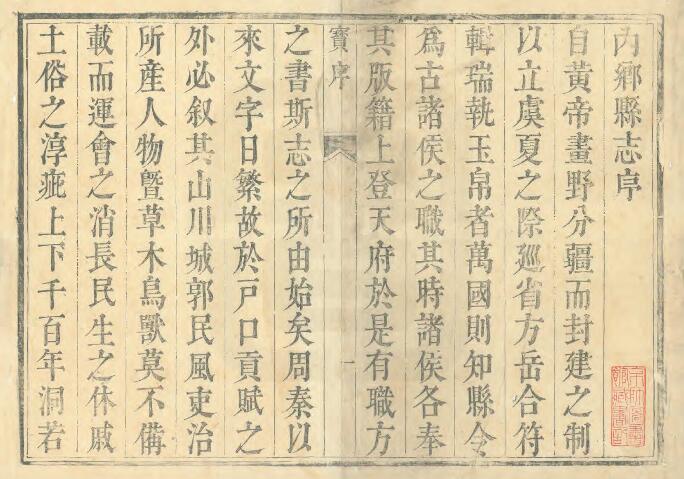 內鄉縣志序
自黃帝畫野分疆而封建之制
以立虞夏之際廵省方岳合符
輯瑞執玉帛者萬國則知縣令
為古諸侯之職其時諸侯各奉
其版籍上登天府於是有職方
寶序
一
之書斯志之所由始矣周秦以
來文字日繁故於戸口貢賦之
外必叙其山川城郭民風吏治
所産人物曁草木鳥獸莫不備
載而運會之消長民生之休戚
土俗之淳疵上下千百年洞若